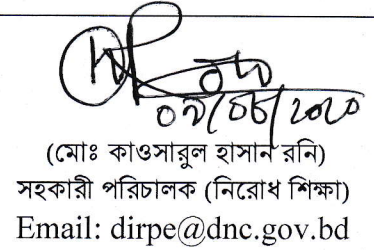 (মোঃ কাওসারুল হাসান রনি)
সহকারী পরিচালক (নিরোধ শিক্ষা)
Email: dirpe@dnc.gov.bd